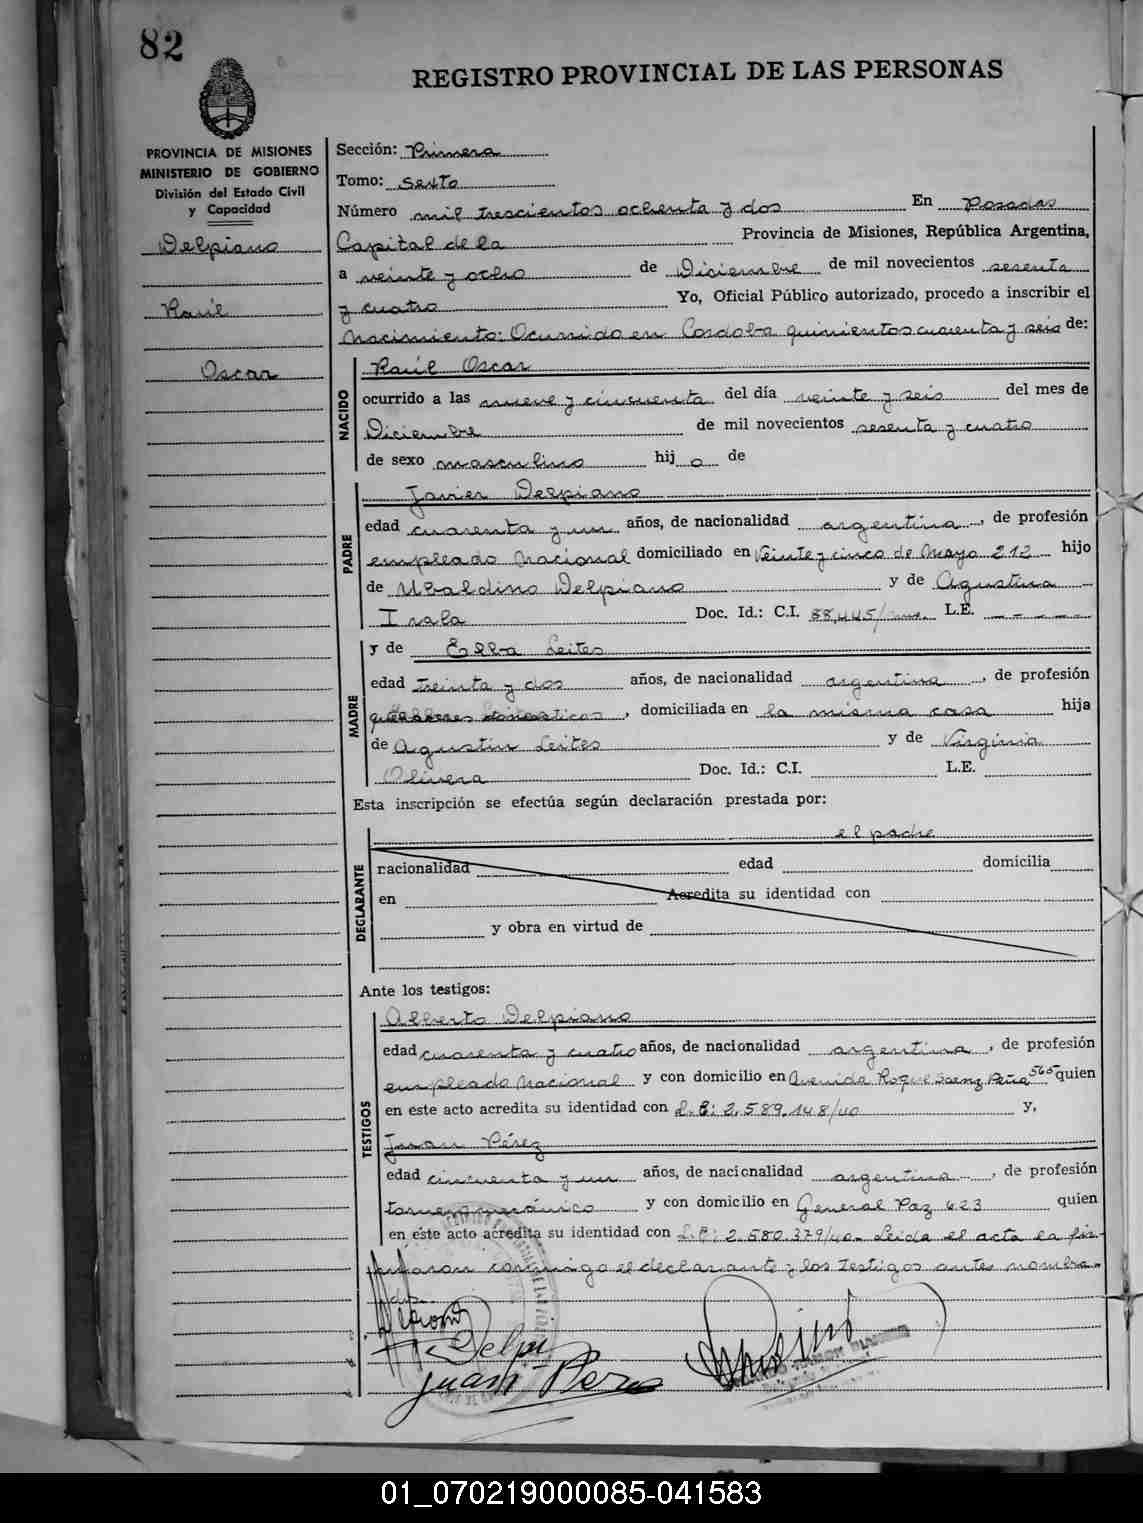 82
REGISTRO PROVINCIAL DE LAS PERSONAS
PROVINCIA DE MISIONES
MINISTERIO DE GOBIERNO
División del Estado Civil
y Capacidad
Delpiano
Raúl
Oscar
Sección: Primera
Tomo: Sexto
Número mil trescientos ochenta y dos En Posadas
Capital de la Provincia de Misiones, República Argentina,
a veinte y ocho de Diciembre de mil novecientos sesenta
y cuatro Yo, Oficial Público autorizado, procedo a inscribir el
Nacimiento: Ocurrido en Cordoba quinientos cuarenta y seis de:
NACIDO
Raúl Oscar
ocurrido a las nueve y cincuenta del día veinte y seis del mes de
Diciembre de mil novecientos sesenta y cuatro
de sexo masculino hijo de
PADRE
Javier Delpiano
edad cuarenta y un años, de nacionalidad argentina, de profesión
empleado Nacional domiciliado en Veinte y cinco de Mayo 212 hijo
de Ubaldino Delpiano y de Agustina
Irala Doc. Id.: C.I. 88,445/ L.E. - - - -
MADRE
y de Elba Leites
edad treinta y dos años, de nacionalidad argentina, de profesión
domiciliada en la misma casa hija
de Agustin Leites y de Virginia
Olivera Doc. Id.: C.I. L.E.
Esta inscripción se efectúa según declaración prestada por:
DECLARANTE
el padre
nacionalidad edad domicilia
en Acredita su identidad con
y obra en virtud de
Ante los testigos:
TESTIGOS
Alberto Delpiano
edad cuarenta y cuatro años, de nacionalidad argentina, de profesión
empleado Nacional y con domicilio en Avenida Roque Saenz Peña 565 quien
en este acto acredita su identidad con L.E: 2.589.148/40 y,
Juan Pérez
edad cincuenta y un años, de nacionalidad argentina, de profesión
tornero mecánico y con domicilio en General Paz 423 quien
en este acto acredita su identidad con L.E: 2.580.379/40. Leida el acta la fir-
maron conmigo el declarante y los testigos antes nombra-
dos.
Juan Perez
01_070219000085-041583